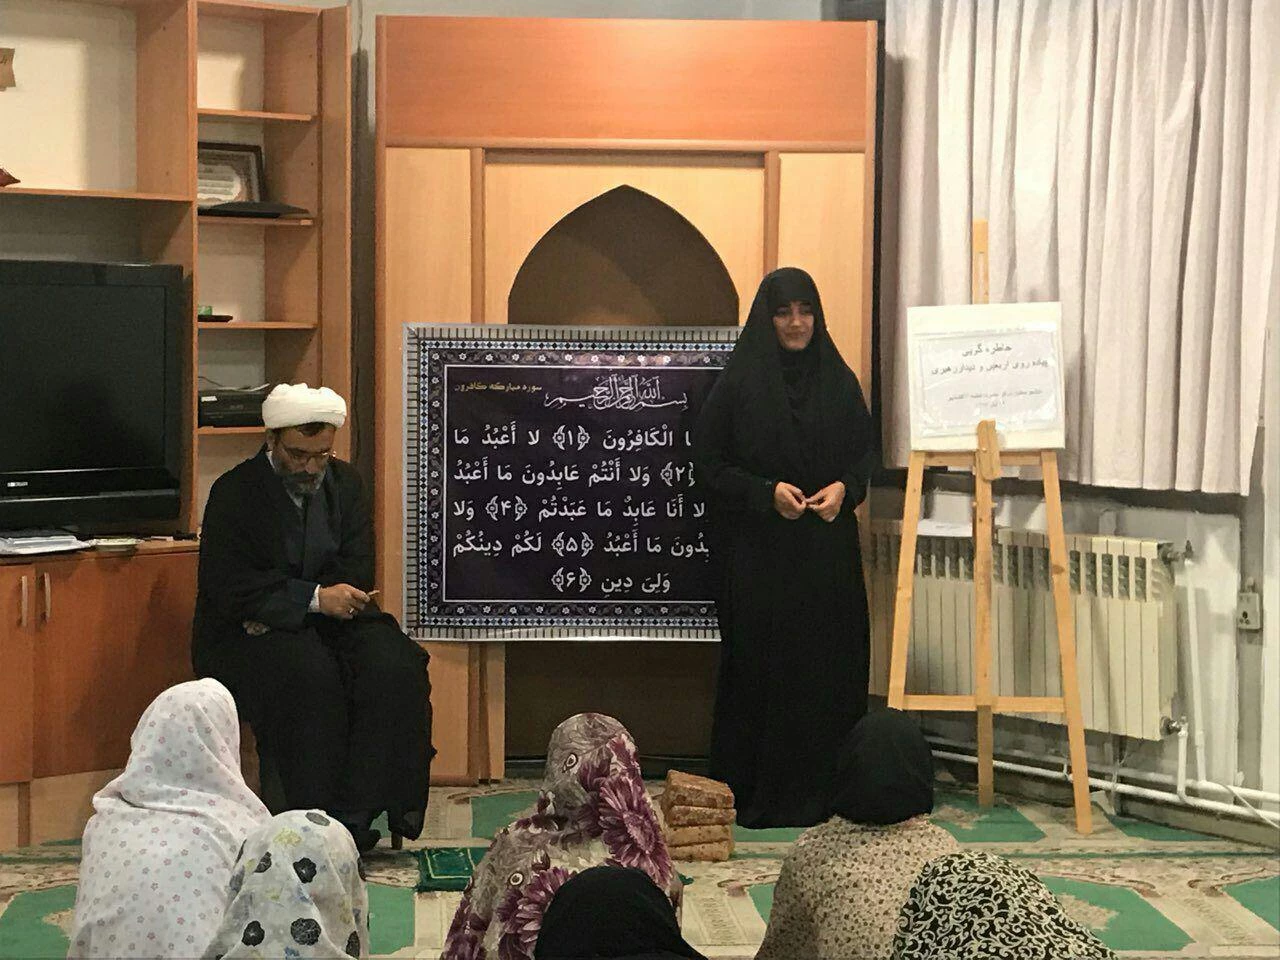 سوره مبارکه کافرون
بِسْمِ اللهِ الرَّحْمنِ الرَّحیمِ
ا الْكَافِرُونَ ﴿۱﴾ لا أَعْبُدُ مَا
﴿۲﴾ وَلا أَنْتُمْ عَابِدُونَ مَا أَعْبُدُ
لا أَنَا عَابِدٌ مَا عَبَدْتُمْ ﴿۴﴾ وَلا
بِدُونَ مَا أَعْبُدُ ﴿۵﴾ لَكُمْ دِينُكُمْ
وَلِيَ دِينِ ﴿۶﴾
خاطره گویی
پیاده روی اربعین و دیدار رهبری